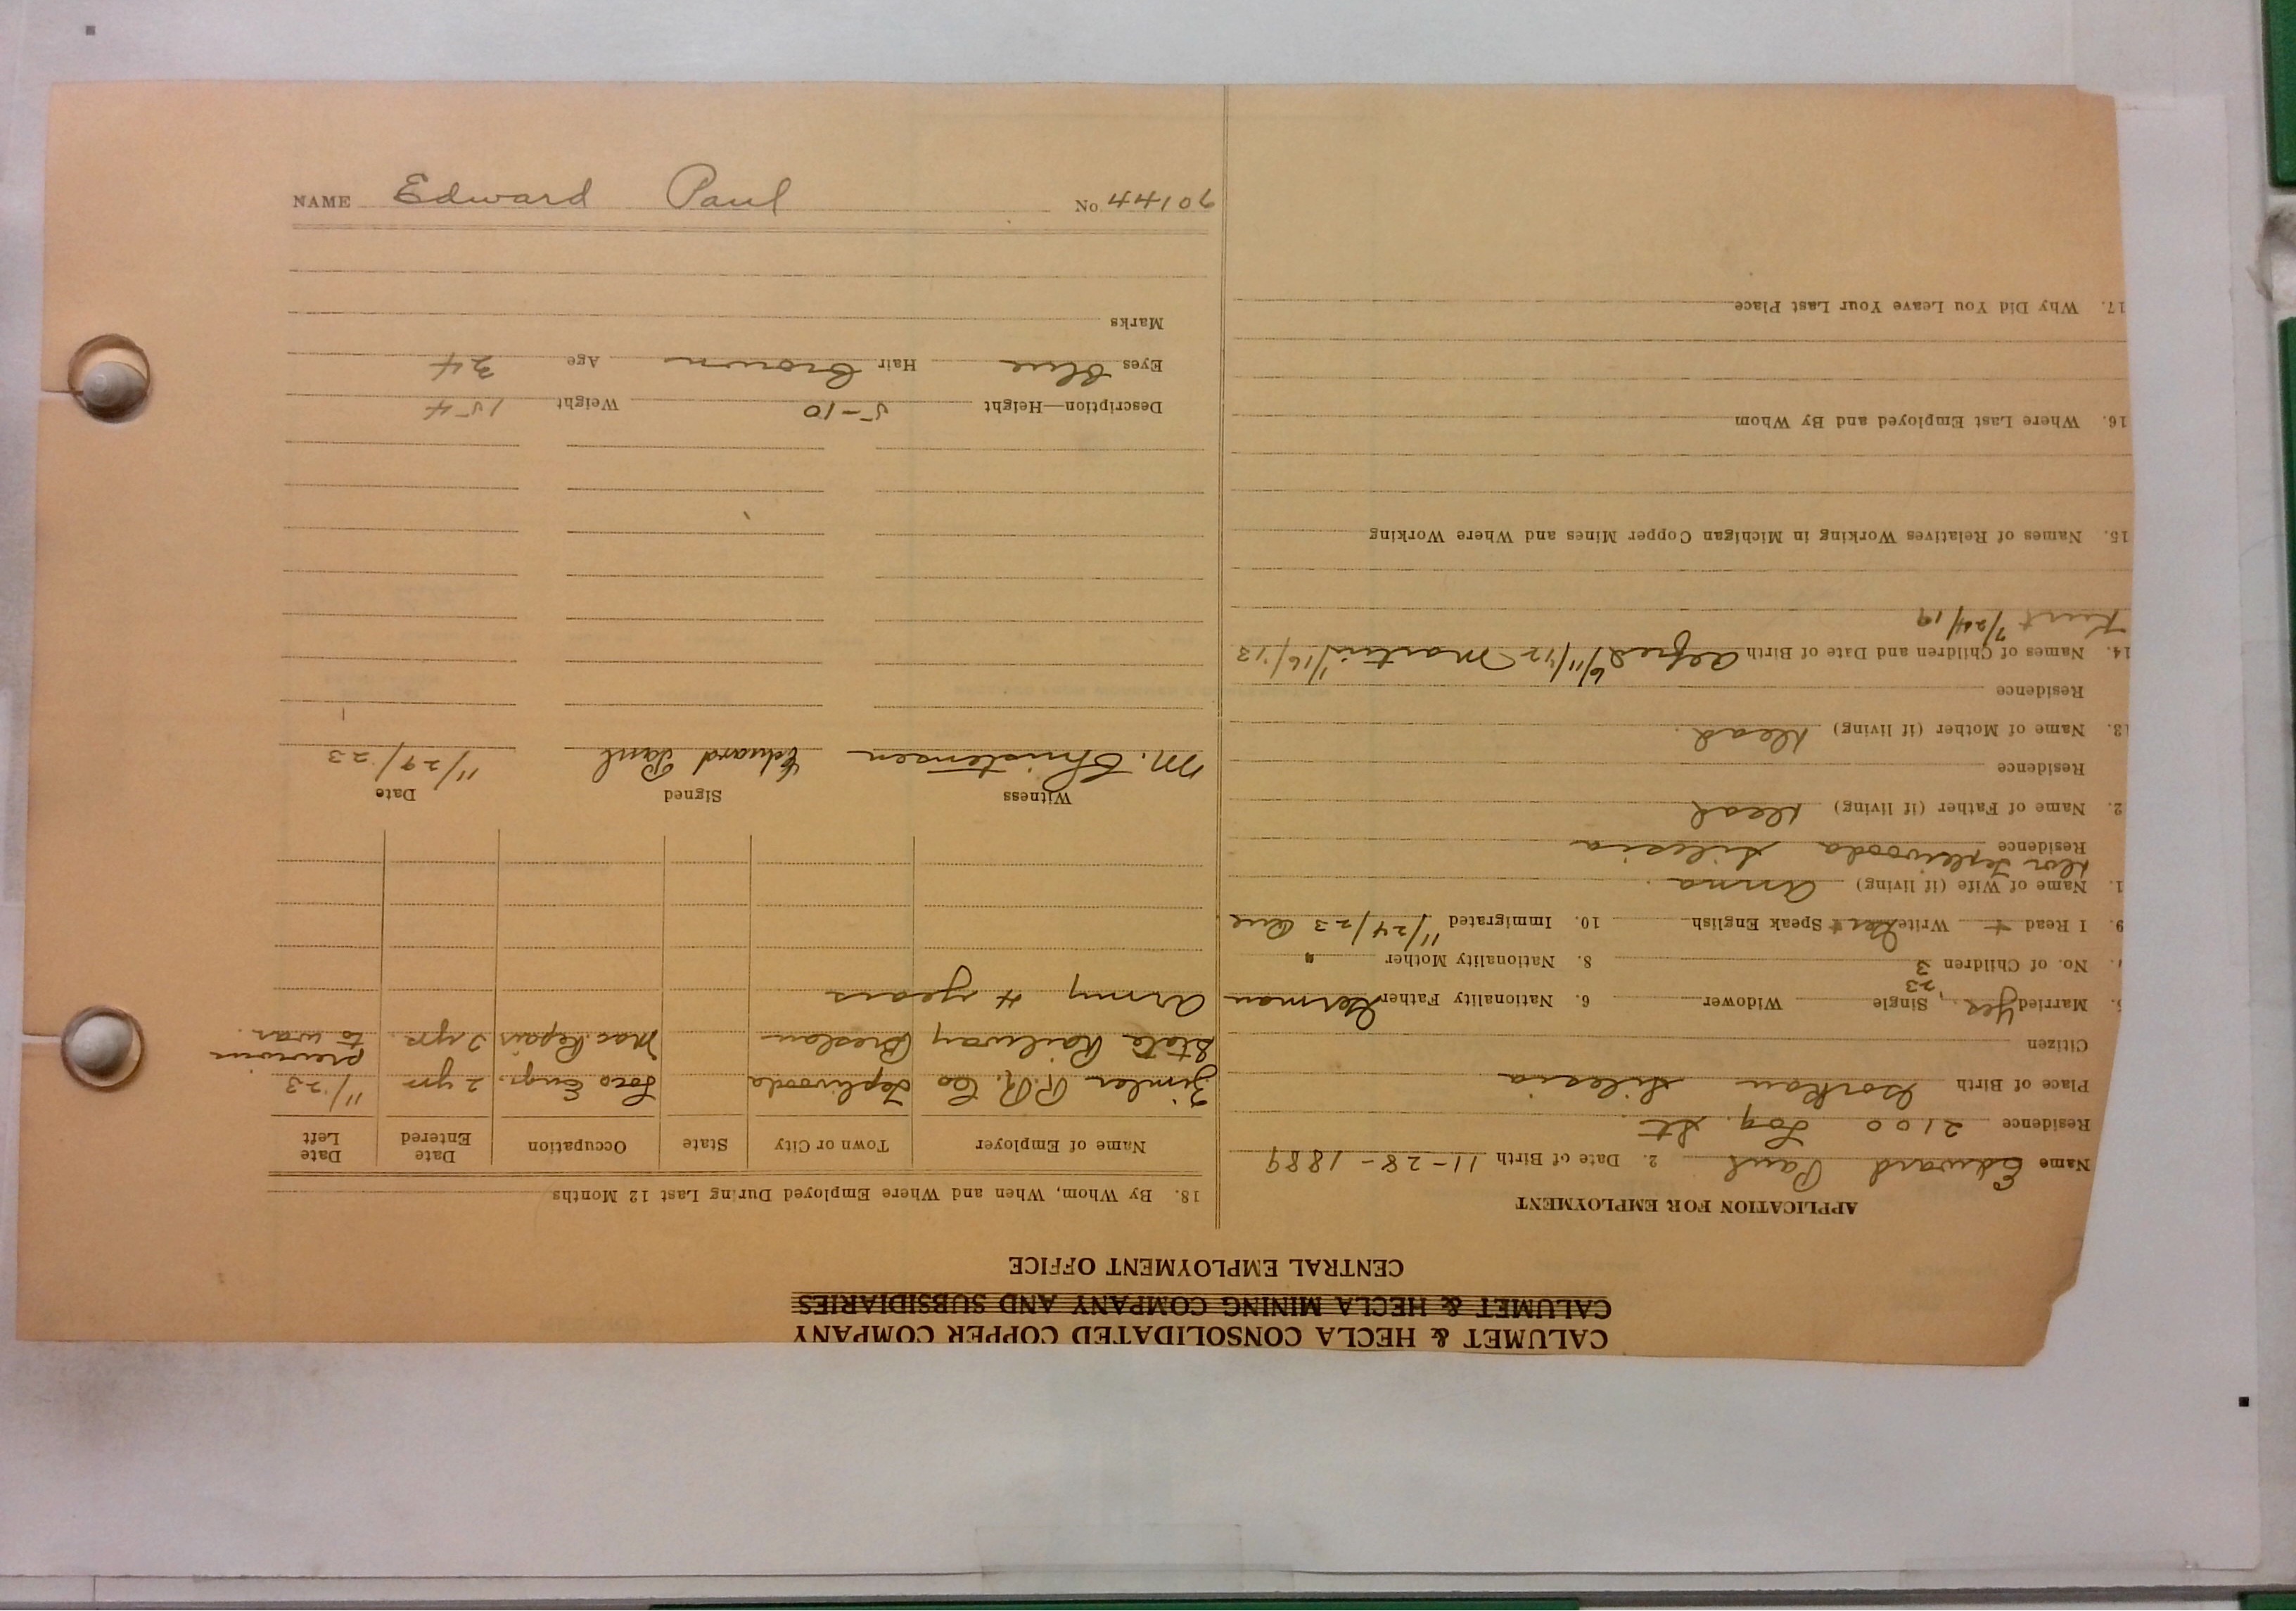 CALUMET & HECLA CONSOLIDATED COPPER COMPANY
CALUMET & HECLA MINING COMPANY AND SUBSIDIARIES
CENTRAL EMPLOYMENT OFFICE
APPLICATION FOR EMPLOYMENT
Name Edward Paul 2. Date of Birth 11-28-1889
Residence 2100 Log. St.
Place of Birth Gorkau Silesia
Citizen
5. Married yes, 23 Single Widower 6. Nationality Father German
No. of Children 3 8. Nationality Mother "
9. I Read + Write Ger + Speak English 10. Immigrated 11/24/23
1. Name of Wife (if living) Anna
Residence Silesia
2. Name of Father (if living) Dead
Residence
13. Name of Mother (if living) Dead.
Residence
14. Names of Children and Date of Birth Alfred 6/11/12 Martin 1/16/13
Kurt 7/24/19
15. Names of Relatives Working in Michigan Copper Mines and Where Working
16. Where Last Employed and By Whom
17. Why Did You Leave Your Last Place
18. By Whom, When and Where Employed During Last 12 Months
Name of Employer Town or City State Occupation Date Entered Date Left
Zimler R.R. Co Teplivooda Loco Engr. 2 yrs 11/23
State Railway Breslau Mac. Repair 2 yrs. previous to war.
Army 4 years
Witness Signed Date
M. Christensen Edward Paul 11/29/23
Description—Height 5-10 Weight 154
Eyes Blue Hair Brown Age 34
Marks
NAME Edward Paul No 44107